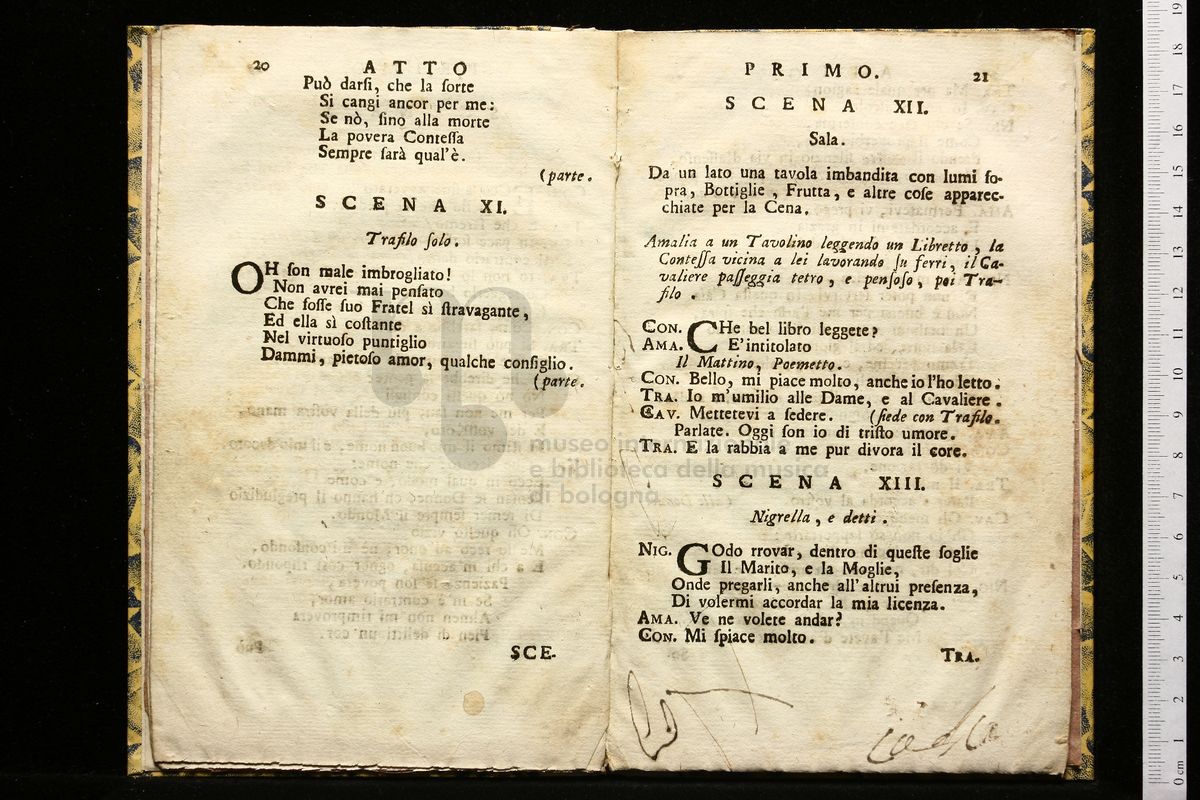 20 ATTO
Può darſi, che la ſorte
Si cangi ancor per me:
Se nò, ſino alla morte
La povera Conteſſa
Sempre ſarà qual'è.
(parte.
SCENA XI.
Trafilo ſolo.
OH ſon male imbrogliato!
Non avrei mai penſato
Che foſſe ſuo Fratel sì ſtravagante,
Ed ella sì coſtante
Nel virtuoſo puntiglio
Dammi, pietoſo amor, qualche conſiglio.
(parte.
SCE-
PRIMO. 21
SCENA XII.
Sala.
Da un lato una tavola imbandita con lumi ſo-
pra, Bottiglie, Frutta, e altre coſe apparec-
chiate per la Cena.
Amalia a un Tavolino leggendo un Libretto, la
Conteſſa vicina a lei lavorando ſu ferri, il Ca-
valiere paſſeggia tetro, e penſoſo, poi Tra-
filo.
CON. CHe bel libro leggete?
AMA. E'intitolato
Il Mattino, Poemetto.
CON. Bello, mi piace molto, anche io l'ho letto.
TRA. Io m'umilio alle Dame, e al Cavaliere.
CAV. Mettetevi a ſedere. (ſiede con Trafilo.
Parlate. Oggi ſon io di triſto umore.
TRA. E la rabbia a me pur divora il core.
SCENA XIII.
Nigrella, e detti.
NIG. GOdo rrovar, dentro di queſte ſoglie
Il Marito, e la Moglie,
Onde pregarli, anche all'altrui preſenza,
Di volermi accordar la mia licenza.
AMA. Ve ne volete andar?
CON. Mi ſpiace molto.
TRA.
museo internazionale
e biblioteca della musica
di bologna
0 cm 1 2 3 4 5 6 7 8 9 10 11 12 13 14 15 16 17 18 19